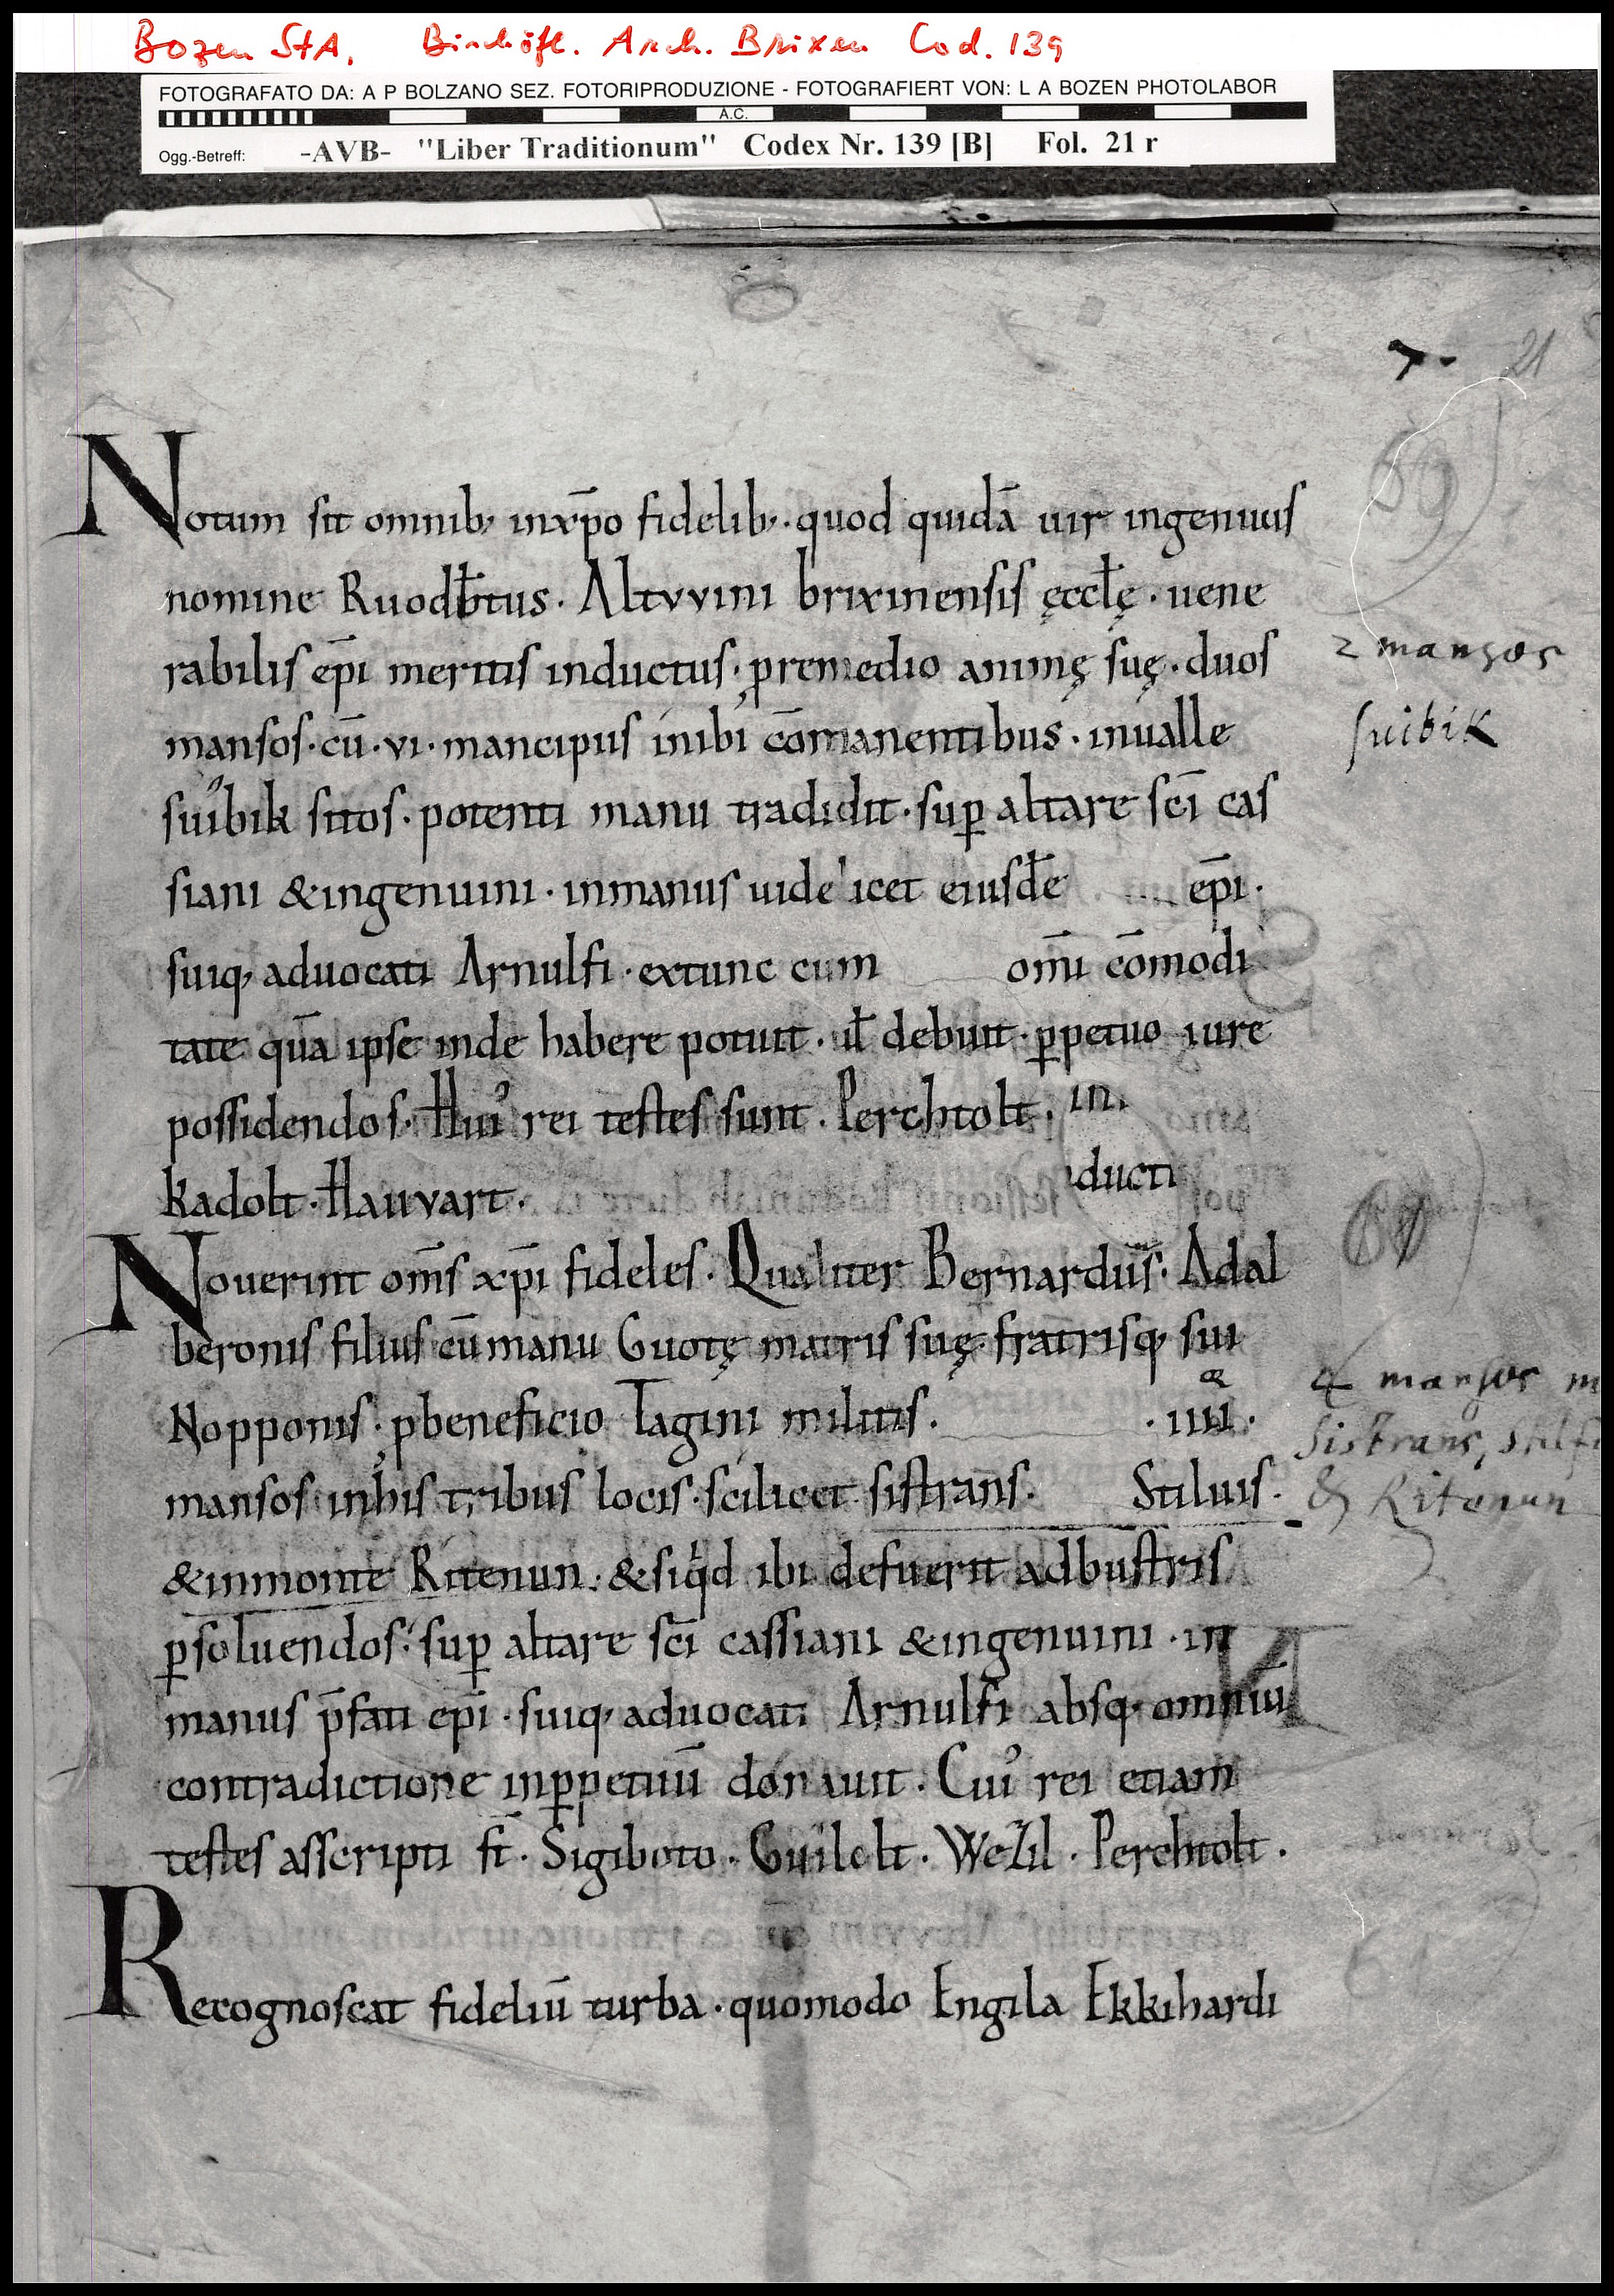 Bozen StA. Bischöfl. Arch. Brixen Cod. 139
FOTOGRAFATO DA: A P BOLZANO SEZ. FOTORIPRODUZIONE - FOTOGRAFIERT VON: L A BOZEN PHOTOLABOR
A.C.
Ogg.-Betreff: -AVB- "Liber Traditionum" Codex Nr. 139 [B] Fol. 21 r
7. 21
59
Notum sit omnib; inxp̄o fidelib;. quod quidā uir ingenuus
nomine Ruodb̄tus. Altvvini brixinensis ęccłę. uene
rabilis ep̄i meritis inductus. ꝓremedio animę suę. duos
2 mansos
mansos. cū. vi. mancipiis inibi cōmanentibus. inualle
suibik
suibik sitos. potenti manu tradidit. suꝑ altare sc̄i cas
siani &ingenuini. inmanus uidelicet eiusdē ep̄i.
suiq; aduocati Arnulfi. extunc cum om̄i cōmodi
tate quā ipse inde habere potuit. uł debuit. ꝑpetuo iure
possidendos. Hui᾽ rei testes sunt. Perchtolt. in.
ducti
kadolt. Hauvart.
60
Nouerint om̄s xp̄i fideles. Qualiter Bernardus. Adal
beronis filius cūmanu Guotę matris suę. fratrisq; sui
Nopponis. ꝓbeneficio Tagini militis. .iiii.
4 mansos in
Sistrans, Stilfs
& Ritenun
mansos inhis tribus locis. scilicet sistrans. Stiluis.
&inmonte Ritenun. &siqd ibi defuerit adbustris
ꝑsoluendos. suꝑ altare sc̄i cassiani &ingenuini. in
manus p̄fati ep̄i. suiq; aduocati Arnulfi absq; omniū
contradictione inꝑpetuū donauit. Cui᾽ rei etiam
testes asscripti st̄. Sigiboto. Guilolt. Wezil. Perchtolt.
61
Recognoscat fideliū turba. quomodo Engila Ekkihardi